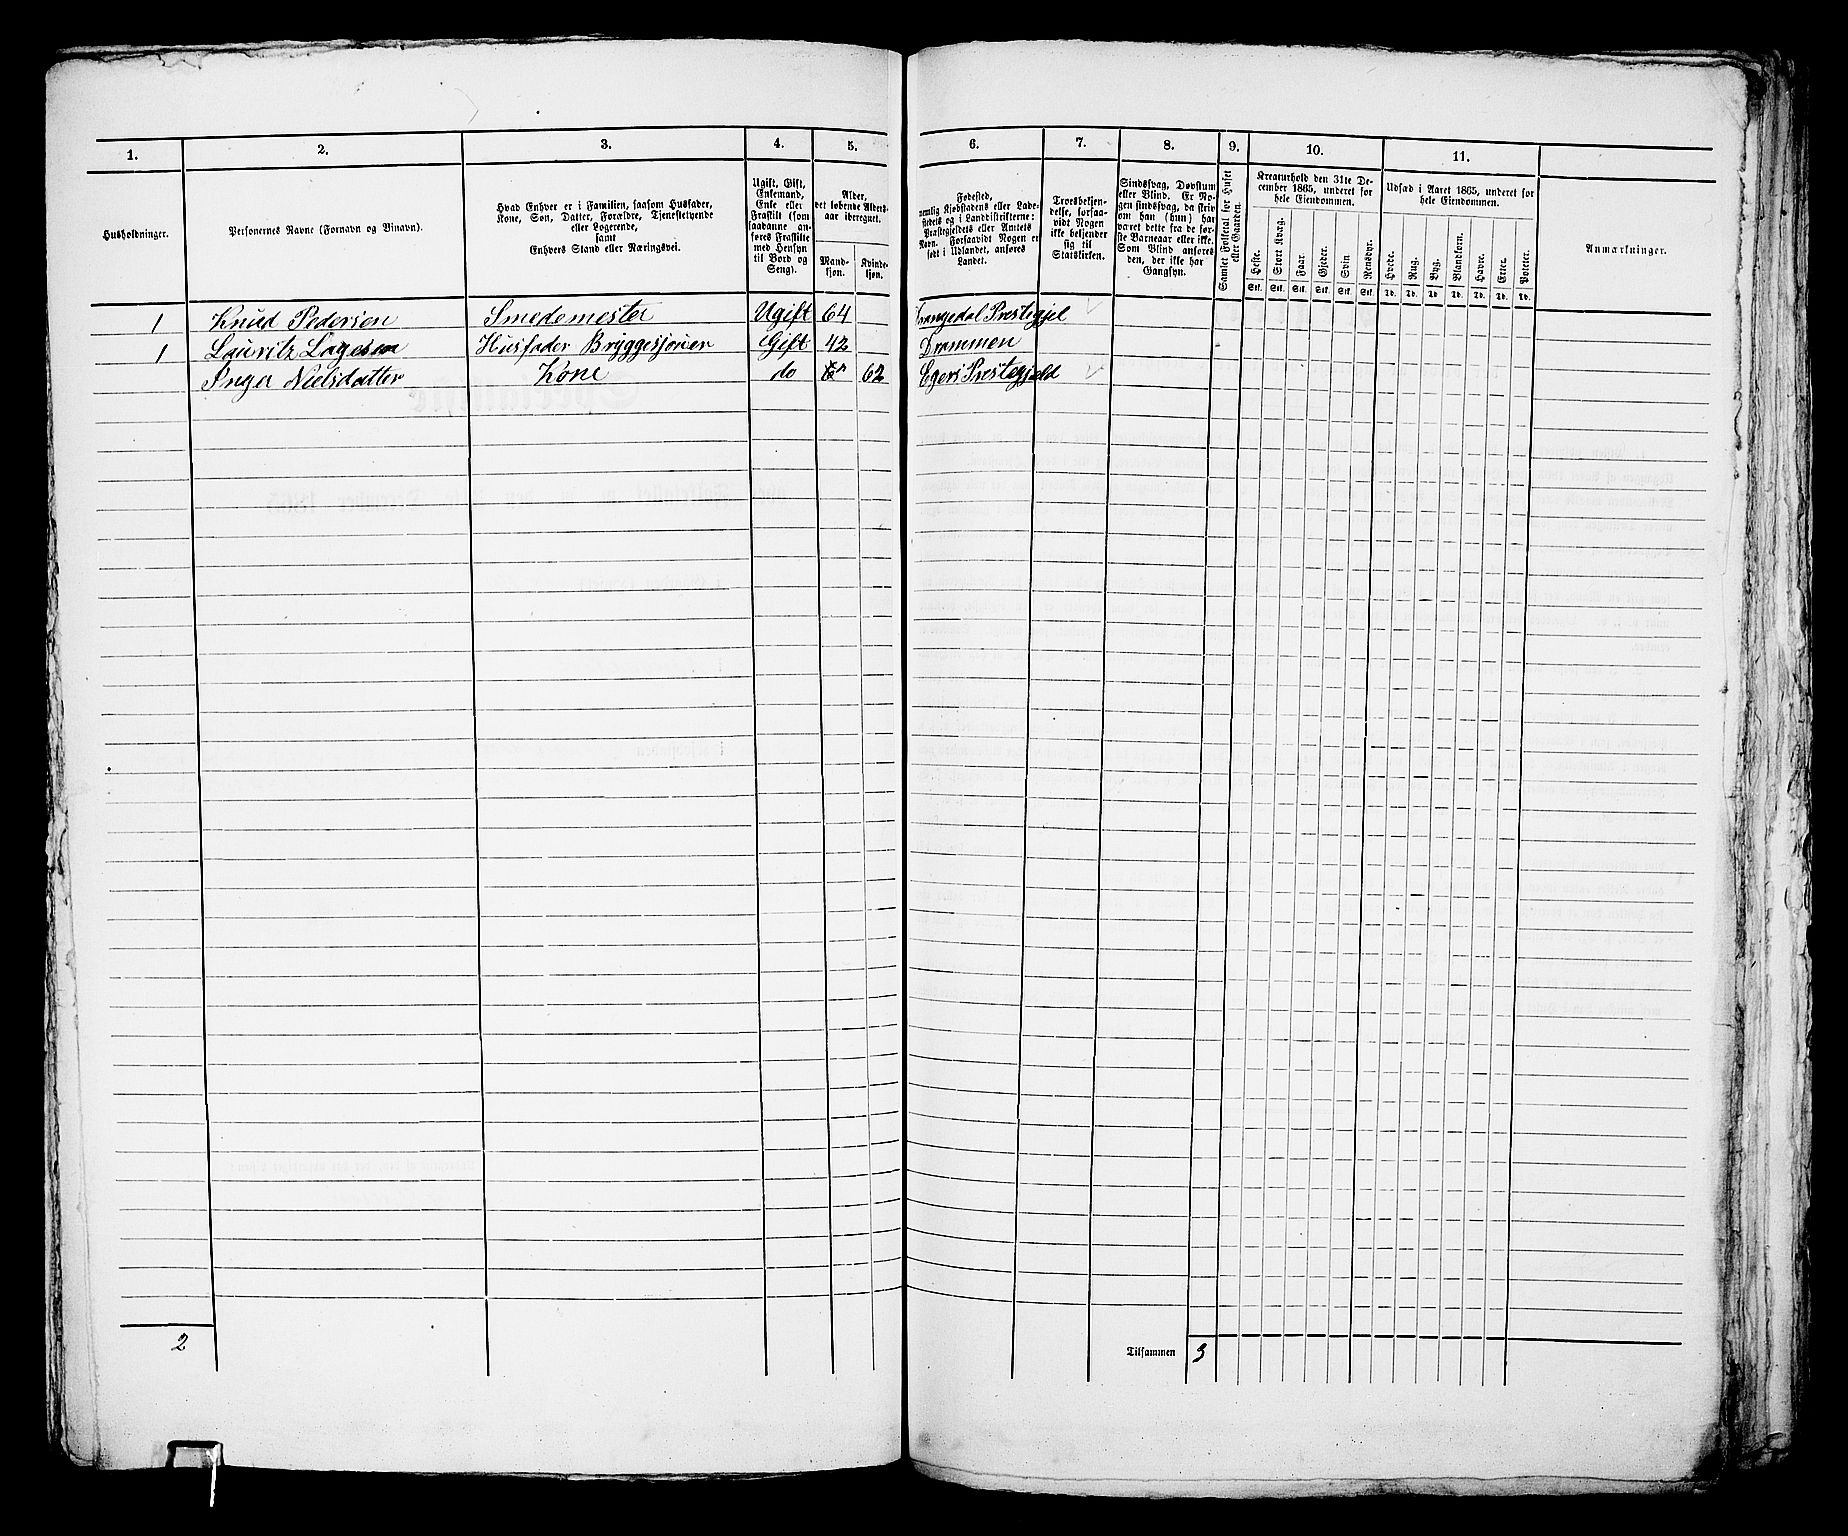 1.
2.
3.
4.
5.
6.
7.
8.
9.
10.
11.
Husholdninger.
Personernes Navne (Fornavn og Binavn).
Hvad Enhver er i Familien, saasom Husfader,
Kone, Søn, Datter, Forældre, Tjenestetyende
eller Logerende,
samt
Enhvers Stand eller Næringsvei.
Ugift, Gift,
Enkemand,
Enke eller
Fraskilt (som
saadanne an-
føres Fraskilte
med Hensyn
til Bord og
Seng).
Alder,
det løbende Alders-
aar iberegnet.
Mand-
kjøn.
Kvinde-
kjøn.
Fødested,
nemlig Kjøbstadens eller Lade-
stedets og i Landdistrikterne:
Præstegjeldets eller Amtets
Navn. Forsaavidt Nogen er
født i Udlandet, anføres
Landet.
Troesbekjen-
delse, forsaa-
vidt Nogen
ikke bekjender
sig til
Statskirken.
Sindssvag, Døvstum
eller Blind. Er No-
gen sindssvag, da skriv
om han (hun) har
været dette fra de før-
ste Barneaar eller ikke.
Som Blind anføres
den, der ikke har
Gangsyn.
Samlet Folketal for Huset
eller Gaarden.
Kreaturhold den 31te De-
cember 1865, underet for
hele Eiendommen.
Heste.
Stort Kvæg.
Faar.
Gjeder.
Svin.
Rensdyr.
Stk. Stk. Stk. Stk. Stk. Stk.
Udsæd i Aaret 1865, underet for
hele Eiendommen.
Hvede.
Rug.
Byg.
Blandkorn.
Havre.
Erter.
Poteter.
Td. Td. Td. Td. Td. Td. Td.
Anmærkninger.
1 Knud Pedersen Smedemester Ugift 64 Drangedal Prestegjel
1 Lauritz Lagesen Husfader Bryggesjouer Gift 42 Drammen
Inger Nielsdatter Kone do 62 Egers Prestegjeld
2
Tilsammen 3